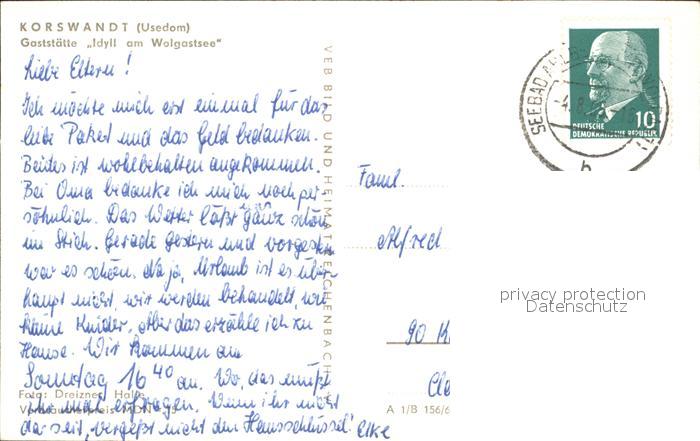 KORSWANDT (Usedom)
Gaststätte „Idyll am Wolgastsee"
Liebe Eltern!
Ich möchte mich erst einmal für das
liebe Paket und das Geld bedanken.
Beides ist wohlbehalten angekommen.
Bei Oma bedanke ich mich noch per-
söhnlich. Das Wetter läßt ganz schön
im Stich. Gerade gestern und vorgestern
war es schön. Na ja, Urlaub ist es über-
haupt nicht, wir werden behandelt, wie
kleine Kinder. Aber das erzähle ich zu
Hause. Wir kommen am
Sonntag 16 40 an. Wo, das müßt
ihr mal erfragen. Wenn ihr nicht
da seit, vergeßt nicht den Hausschlüssel! Elke
Foto: Dreizner, Halle
Verbraucherpreis MDN
VEB BILD UND HEIMAT REICHENBACH
SEEBAD AHLB
-4.8.
10
DEUTSCHE
DEMOKRATISCHE REPUBLIK
b
Faml.
Alfred
90 K
Cle
A 1/B 156/6
privacy protection
Datenschutz